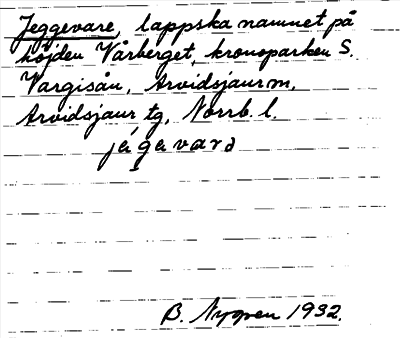 Jeggevare, lappska namnet på
höjden Vårberget, kronoparken S.
Vargisån, Arvidsjaur m.
Arvidsjaur tg, Norrb. l.
jägavarə
B. Nygren 1932.